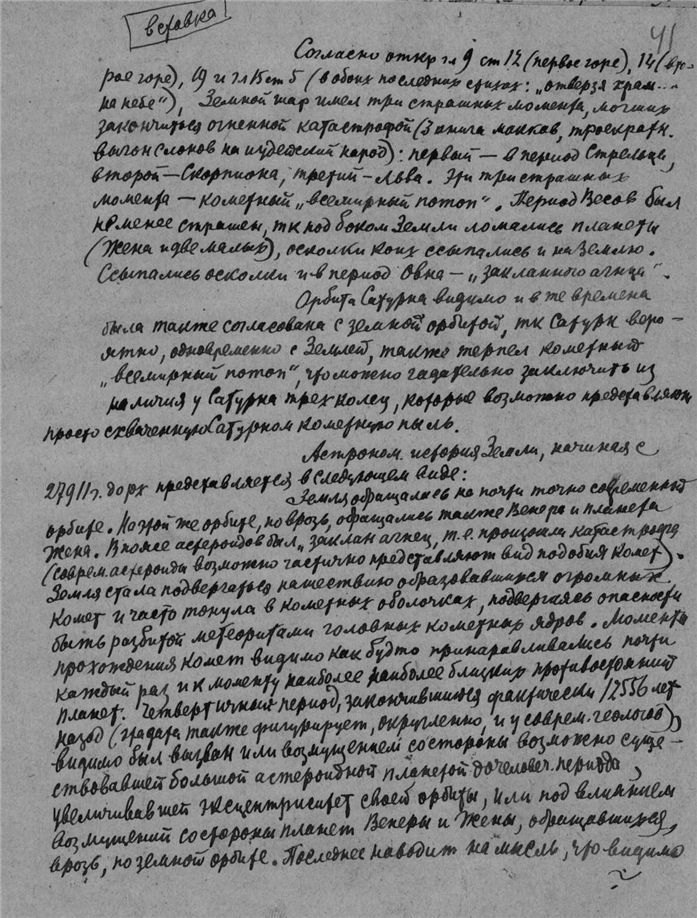 вставка
41
Согласно откр гл 9 ст 12 (первое горе), 14 (вто-
рое горе), 19 и гл 15 ст 5 (в обоих последних стихах: „отверзя храм...
на небе“), Земной шар имел три страшных момента, могших
закончиться огненной катастрофой (3 книга маккав, троекратн.
выгон слонов на иудейский народ): первый — в период Стрельца,
второй — Скорпиона, третий — Льва. Эти три страшных
момента — кометный „всемирный потоп“. Период Весов был
не менее страшен, тк под боком Земли ломались планеты
(Жена и две малых), осколки коих ссыпались и на Землю.
Ссыпались осколки и в период Овна — „закланного агнца“.
Орбита Сатурна видимо и в те времена
была также согласована с земной орбитой, тк Сатурн веро-
ятно, одновременно с Землей, также терпел кометный
„всемирный потоп“, что можно гадательно заключить из
наличия у Сатурна трех колец, которые возможно представляют
просто схваченную Сатурном кометную пыль.
Астроном. история Земли, начиная с
27911 г. до рх представляется в следующем виде:
Земля обращалась на почти точно современной
орбите. На этой же орбите, но врозь, обращались также Венера и планета
Жена. В поясе астероидов был „заклан агнец, т.е. произошла катастрофа
(соврем. астероиды возможно частично представляют вид подобия комет).
Земля стала подвергаться нашествию образовавшихся огромных
комет и часто тонула в кометных оболочках, подвергаясь опасности
быть разбитой метеоритами головных кометных ядров. Моменты
прохождения комет видимо как будто принаравливались почти
каждый раз и к моменту наиболее наиболее близких противостояний
планет. Четвертичный период, закончившийся фактически 12556 лет
назад (эта дата также фигурирует, округленно, и у соврем. геологов),
видимо был вызван или возмущением со стороны возможно суще-
ствовавшей большой астероидной планетой дочеловеч. периода,
увеличивавшей эксцентриситет своей орбиты, или под влиянием
возмущений со стороны планет Венеры и Жены, обращавшихся,
врозь, по земной орбите. Последнее наводит на мысль, что видимо